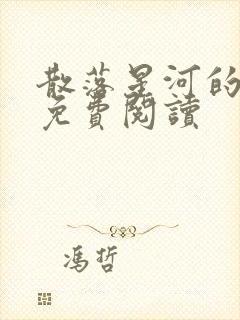 散落星河的
免費閱讀
馮哲